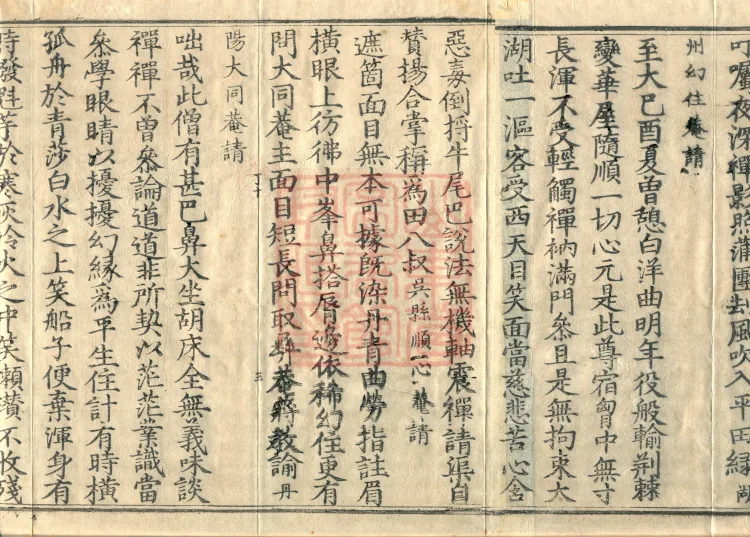 叮囑夜深禪影照蒲團去風吹入平田綠湖
州幻住菴請
至大己酉夏曾憩白洋曲明年役般輸荆棘
變華屋隨順一切心元是此尊宿胷中無寸
長渾不受輕觸禪衲滿門叅且是無拘束太
湖吐一漚容受西天目笑面當慈悲苦心含
惡毒倒捋牛尾巴說法無機軸震禪請渠自
賛揚合掌稱為田八叔吳縣順心菴請
遮箇面目無本可據旣染丹青曲勞指註眉
橫眼上彷彿中峯鼻搭脣邊依稀幻住更有
問大同菴主面目短長問取彛菴蔣敎諭丹
陽大同菴請
咄哉此僧有甚巴鼻大坐胡床全無義味談
禪禪不曾叅論道道非所執以茫茫業識當
叅學眼睛以擾擾幻緣爲平生住計有時橫
孤舟於青莎白水之上笑船子便棄渾身有
時發𤓰芋於寒灰冷火之中笑懶瓚不收殘